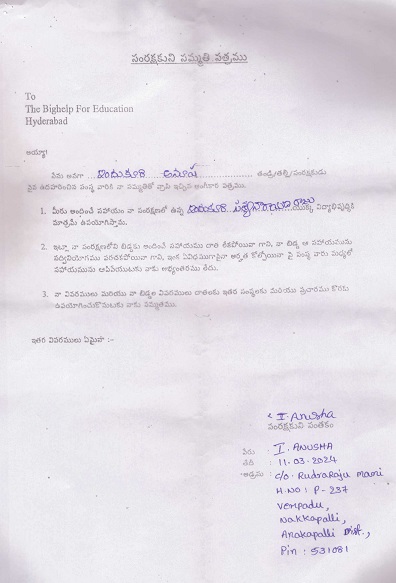 సంరక్షకుని సమ్మతి పత్రము
To
The Bighelp For Education
Hyderabad
అయ్యా!
నేను అనగా ఇందుకూరి అనూష తండ్రి/తల్లి/సంరక్షకుడు
పైన ఉదహరించిన సంస్థ వారికి నా సమ్మతితో వ్రాసి ఇచ్చిన అంగీకార పత్రము.
1. మీరు అందించే సహాయం నా సంరక్షణలో ఉన్న ఇందుకూరి సత్యనారాయణ రాజు యొక్క విద్యాభివృద్ధికి
మాత్రమే ఉపయోగిస్తాను.
2. ఇట్లా నా సంరక్షణలోని బిడ్డకు అందించే సహాయము దాత లేకపోయినా గాని, నా బిడ్డ ఆ సహాయమును
సద్వినియోగము పరచకపోయినా గాని, ఇంక ఏవిధముగానైనా అర్హత కోల్పోయినా పై సంస్థ వారు మధ్యలో
సహాయమును ఆపివేయుటకు నాకు అభ్యంతరము లేదు.
3. నా వివరములు మరియు నా బిడ్డల వివరములు దాతలకు ఇతర సంస్థలకు మరియు ప్రచారము కొరకు
ఉపయోగించుకొనుటకు నాకు సమ్మతము.
ఇతర వివరములు ఏమైనా :-
I. Anusha
సంరక్షకుని సంతకం
పేరు : I. ANUSHA
తేది : 11-03-2024
అడ్రసు : C/o. RudraRaju Mani
H.NO : P-237
Vempadu,
Nakkapalli,
Anakapalli Dist.,
Pin : 531081